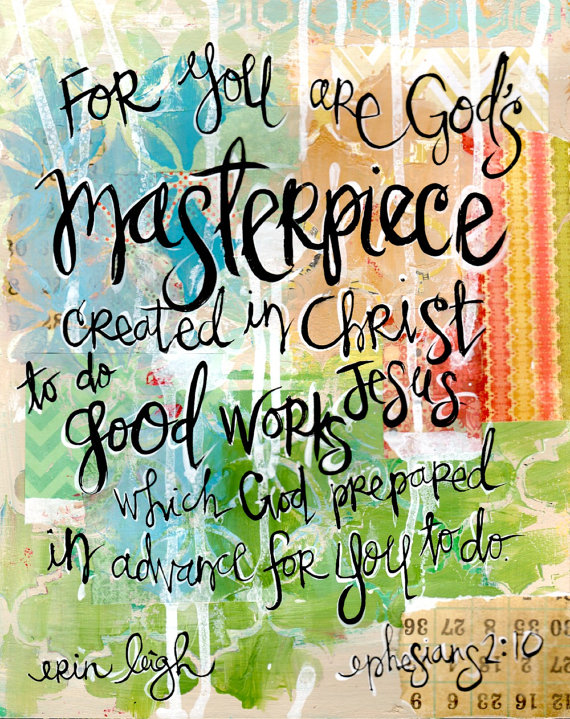 FOR You are God's
Masterpiece
created in Christ
Jesus
to do
good works
which God prepared
in advance for you to do.
erin leigh
ephesians 2:10